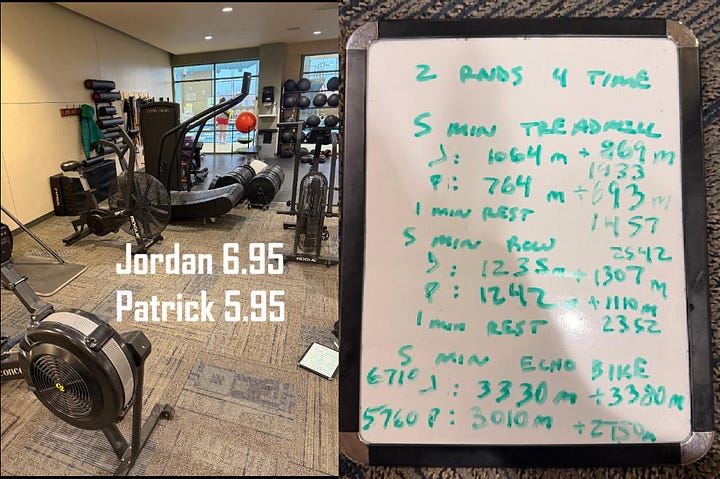 Jordan 6.95
Patrick 5.95
ROGUE
2 RNDS 4 TIME
5 MIN TREADMILL
J: 1064 m + 869 m
1933
P: 764 m + 693 m
1 MIN REST 1457
5 MIN ROW 2542
J: 1235m + 1307 m
P: 1242 m + 1110 m
1 MIN REST 2352
5 MIN ECHO BIKE
6710 J: 3330 m + 3380 m
5760 P: 3010 m + 2750m